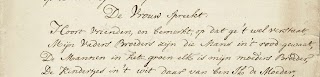 De Vrouw Spreekt.
Hoort Vrienden, en bemerkt, op dat gÿ 't wel verstaat,
Mÿn Vaders Broeders zÿn die Mans in 't rood gewaat,
De Mannen in het groen elk is mÿn moeders Broeder,
De Kindertjes in 't wit daar van ben Ik de Moeder,